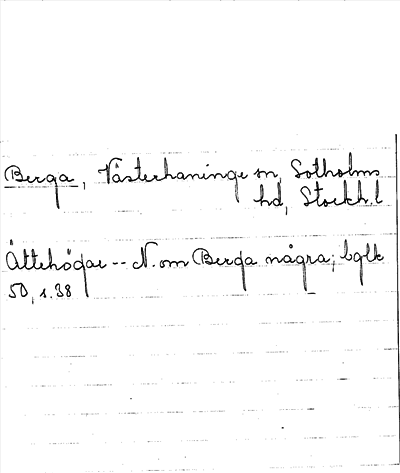 Berga, Västerhaninge sn, Sotholms
hd, Stockh.l
Ättehögar -- N. om Berga några; bglk
50, s.38